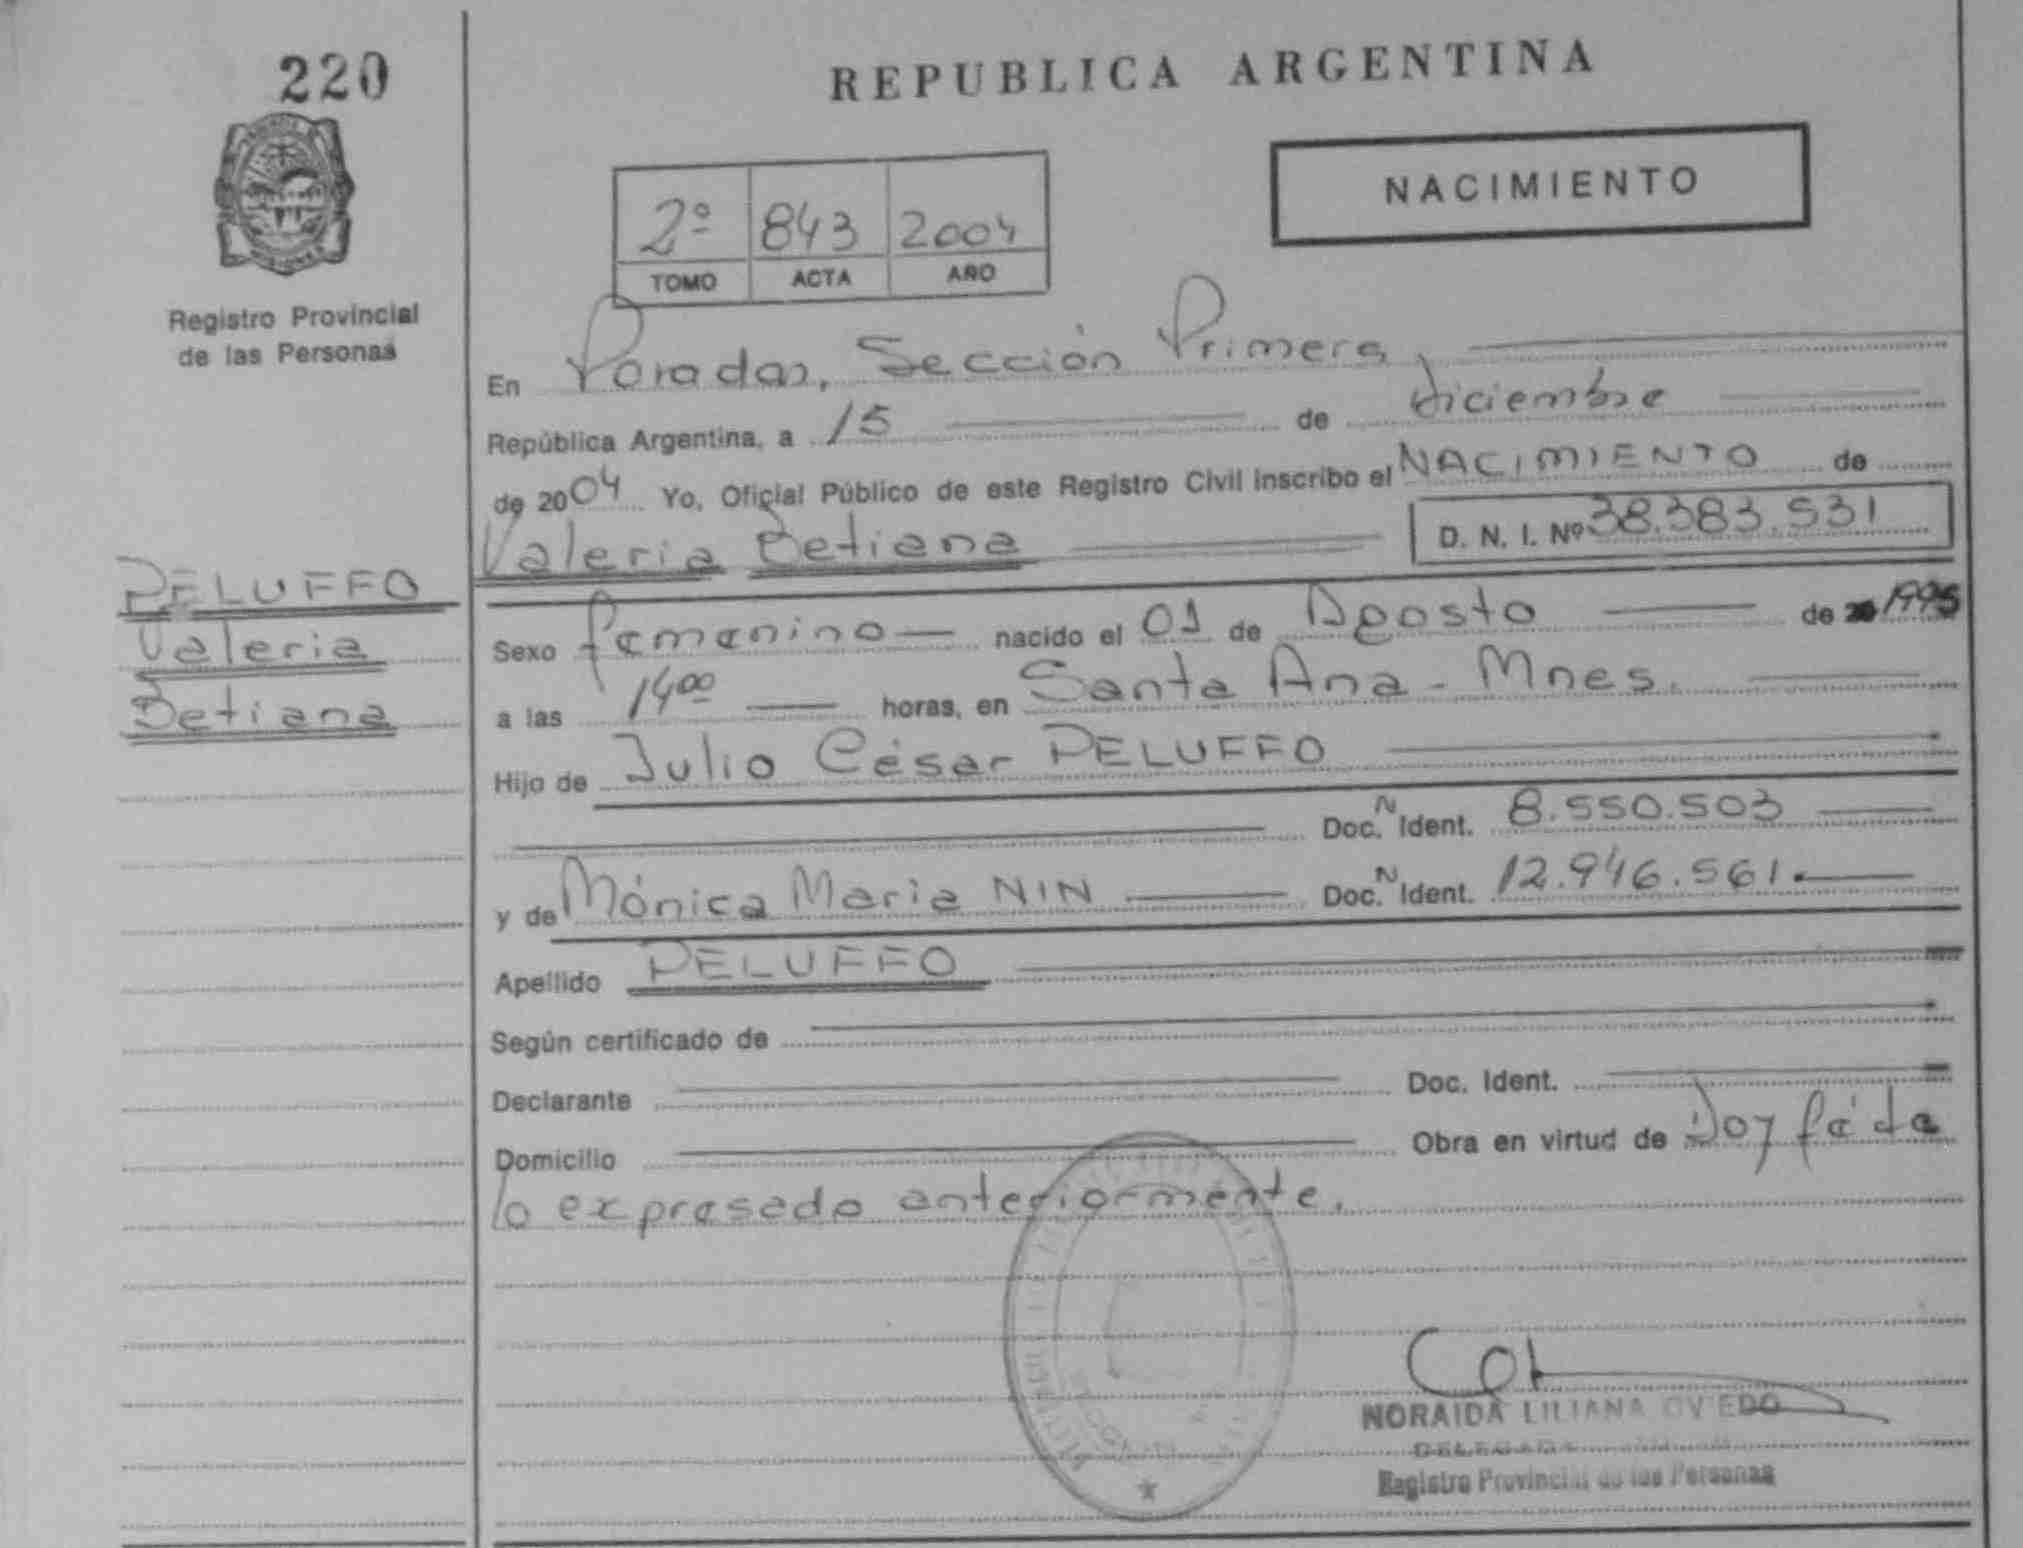 220
REPUBLICA ARGENTINA
NACIMIENTO
2º 843 2004
TOMO ACTA AÑO
Registro Provincial
de las Personas
En Posadas, Sección Primera,
República Argentina, a 15 de diciembre
de 2004 Yo, Oficial Público de este Registro Civil inscribo el NACIMIENTO de
Valeria Betiana D. N. I. Nº 38.383.531
PELUFFO
Valeria
Betiana
Sexo femenino nacido el 01 de Agosto de 1995
a las 14⁰⁰ horas, en Santa Ana - Mnes.
Hijo de Julio César PELUFFO
Doc. N Ident. 8.550.503
y de Mónica Maria NIN Doc. N Ident. 12.946.561.
Apellido PELUFFO
Según certificado de
Declarante Doc. Ident.
Domicilio Obra en virtud de Doy fé de
lo expresado anteriormente.
NORAIDA LILIANA OVIEDO
DELEGADA
Registro Provincial de las Personas